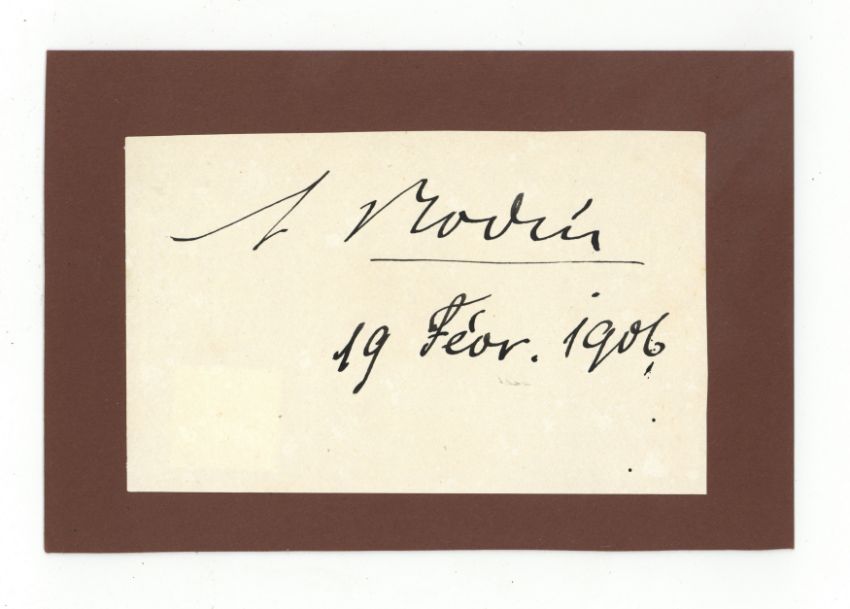 A Rodin
19 Févr. 1906